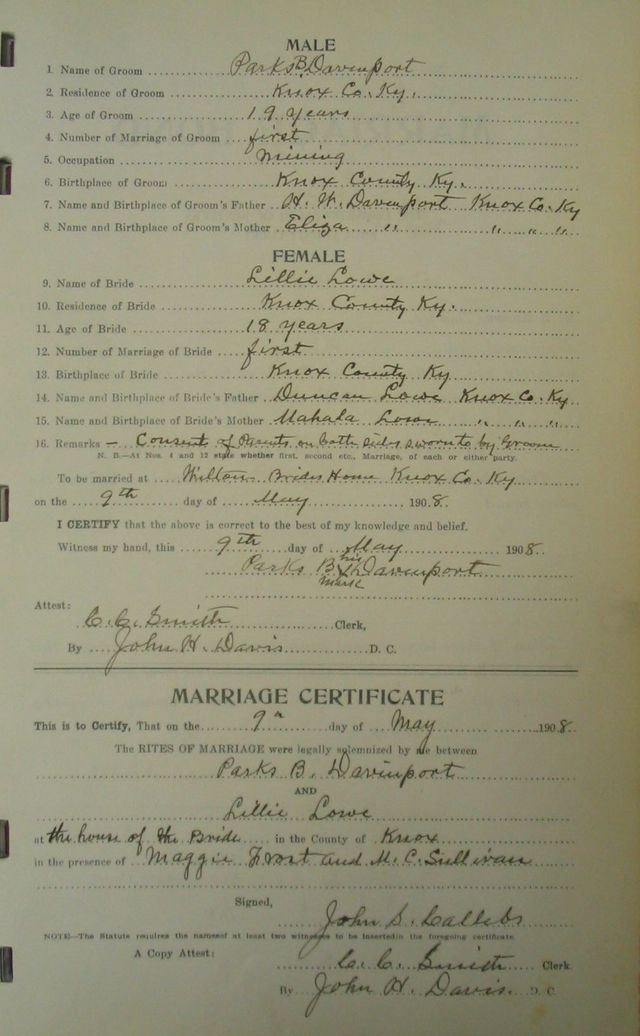 MALE
1. Name of Groom Parks B. Davenport
2. Residence of Groom Knox Co. Ky.
3. Age of Groom 19 years
4. Number of Marriage of Groom first
5. Occupation Mining
6. Birthplace of Groom Knox County Ky.
7. Name and Birthplace of Groom's Father H. W. Davenport Knox Co. Ky
8. Name and Birthplace of Groom's Mother Eliza " " " "
FEMALE
9. Name of Bride Lillie Lowe
10. Residence of Bride Knox County Ky.
11. Age of Bride 18 years
12. Number of Marriage of Bride first
13. Birthplace of Bride Knox County Ky
14. Name and Birthplace of Bride's Father Duncan Lowe Knox Co. Ky
15. Name and Birthplace of Bride's Mother Mahala Lowe " " "
16. Remarks – Consent of Parents on both sides sworn to by Groom
N. B.—At Nos. 4 and 12 state whether first, second etc., Marriage, of each or either party.
To be married at Brides Home Knox Co. Ky
on the 9th day of May 1908.
I CERTIFY that the above is correct to the best of my knowledge and belief.
Witness my hand, this 9th day of May 1908
Parks B his X mark Davenport
Attest:
C. C. Smith Clerk,
By John H. Davis D. C.
MARRIAGE CERTIFICATE
This is to Certify, That on the 9th day of May 1908.
The RITES OF MARRIAGE were legally solemnized by me between
Parks B. Davenport
AND
Lillie Lowe
at the house of the Bride in the County of Knox
in the presence of Maggie Frost and M. C. Sullivan
Signed,
John S. Callebs
NOTE—The Statute requires the names of at least two witnesses to be inserted in the foregoing certificate.
A Copy Attest:
C. C. Smith Clerk
By John H. Davis. D. C.